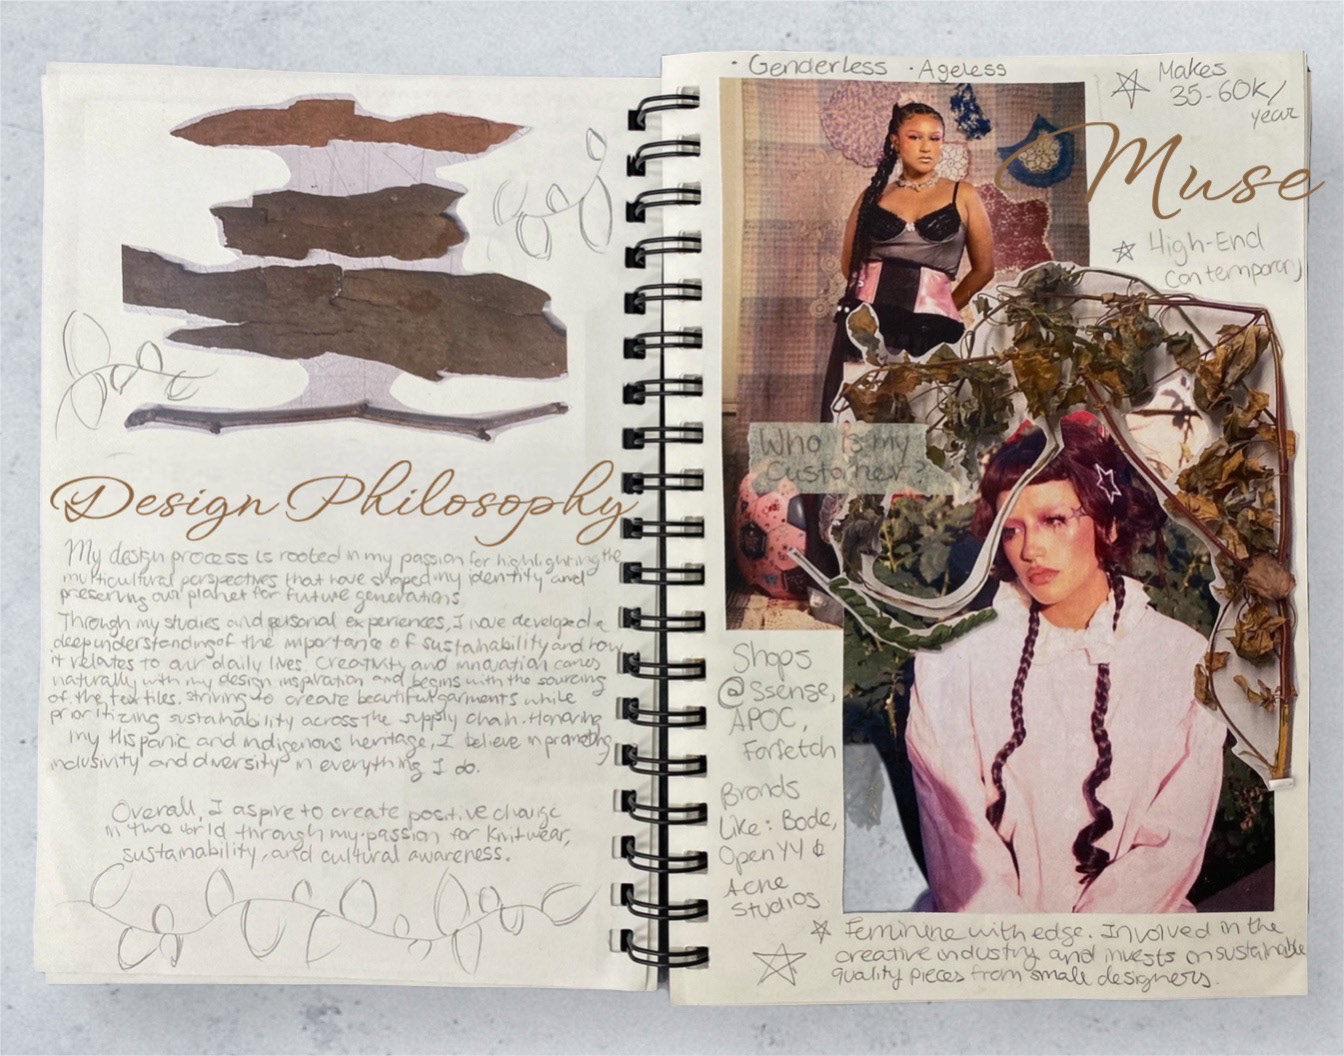 Design Philosophy
My design process is rooted in my passion for highlighting the
multicultural perspectives that have shaped my identity and
preserving our planet for future generations.
Through my studies and personal experiences, I have developed a
deep understanding of the importance of sustainability and how
it relates to our daily lives. Creativity and innovation comes
naturally with my design inspiration and begins with the sourcing
of the textiles. striving to create beautiful garments while
prioritizing sustainability across the supply chain. Honoring
my Hispanic and indigenous heritage, I believe in promoting
inclusivity and diversity in everything I do.
Overall, I aspire to create positive change
in the world through my passion for knitwear,
sustainability, and cultural awareness.
· Genderless · Ageless
Makes
35-60K/
year
Muse
High-End
contemporary
Who is my
Customer?
Shops
@ Ssense,
APOC,
Farfetch
Brands
Like: Bode,
Open YY &
Acne
Studios
Feminine with edge. Involved in the
creative industry and invests on sustainable
quality pieces from small designers.